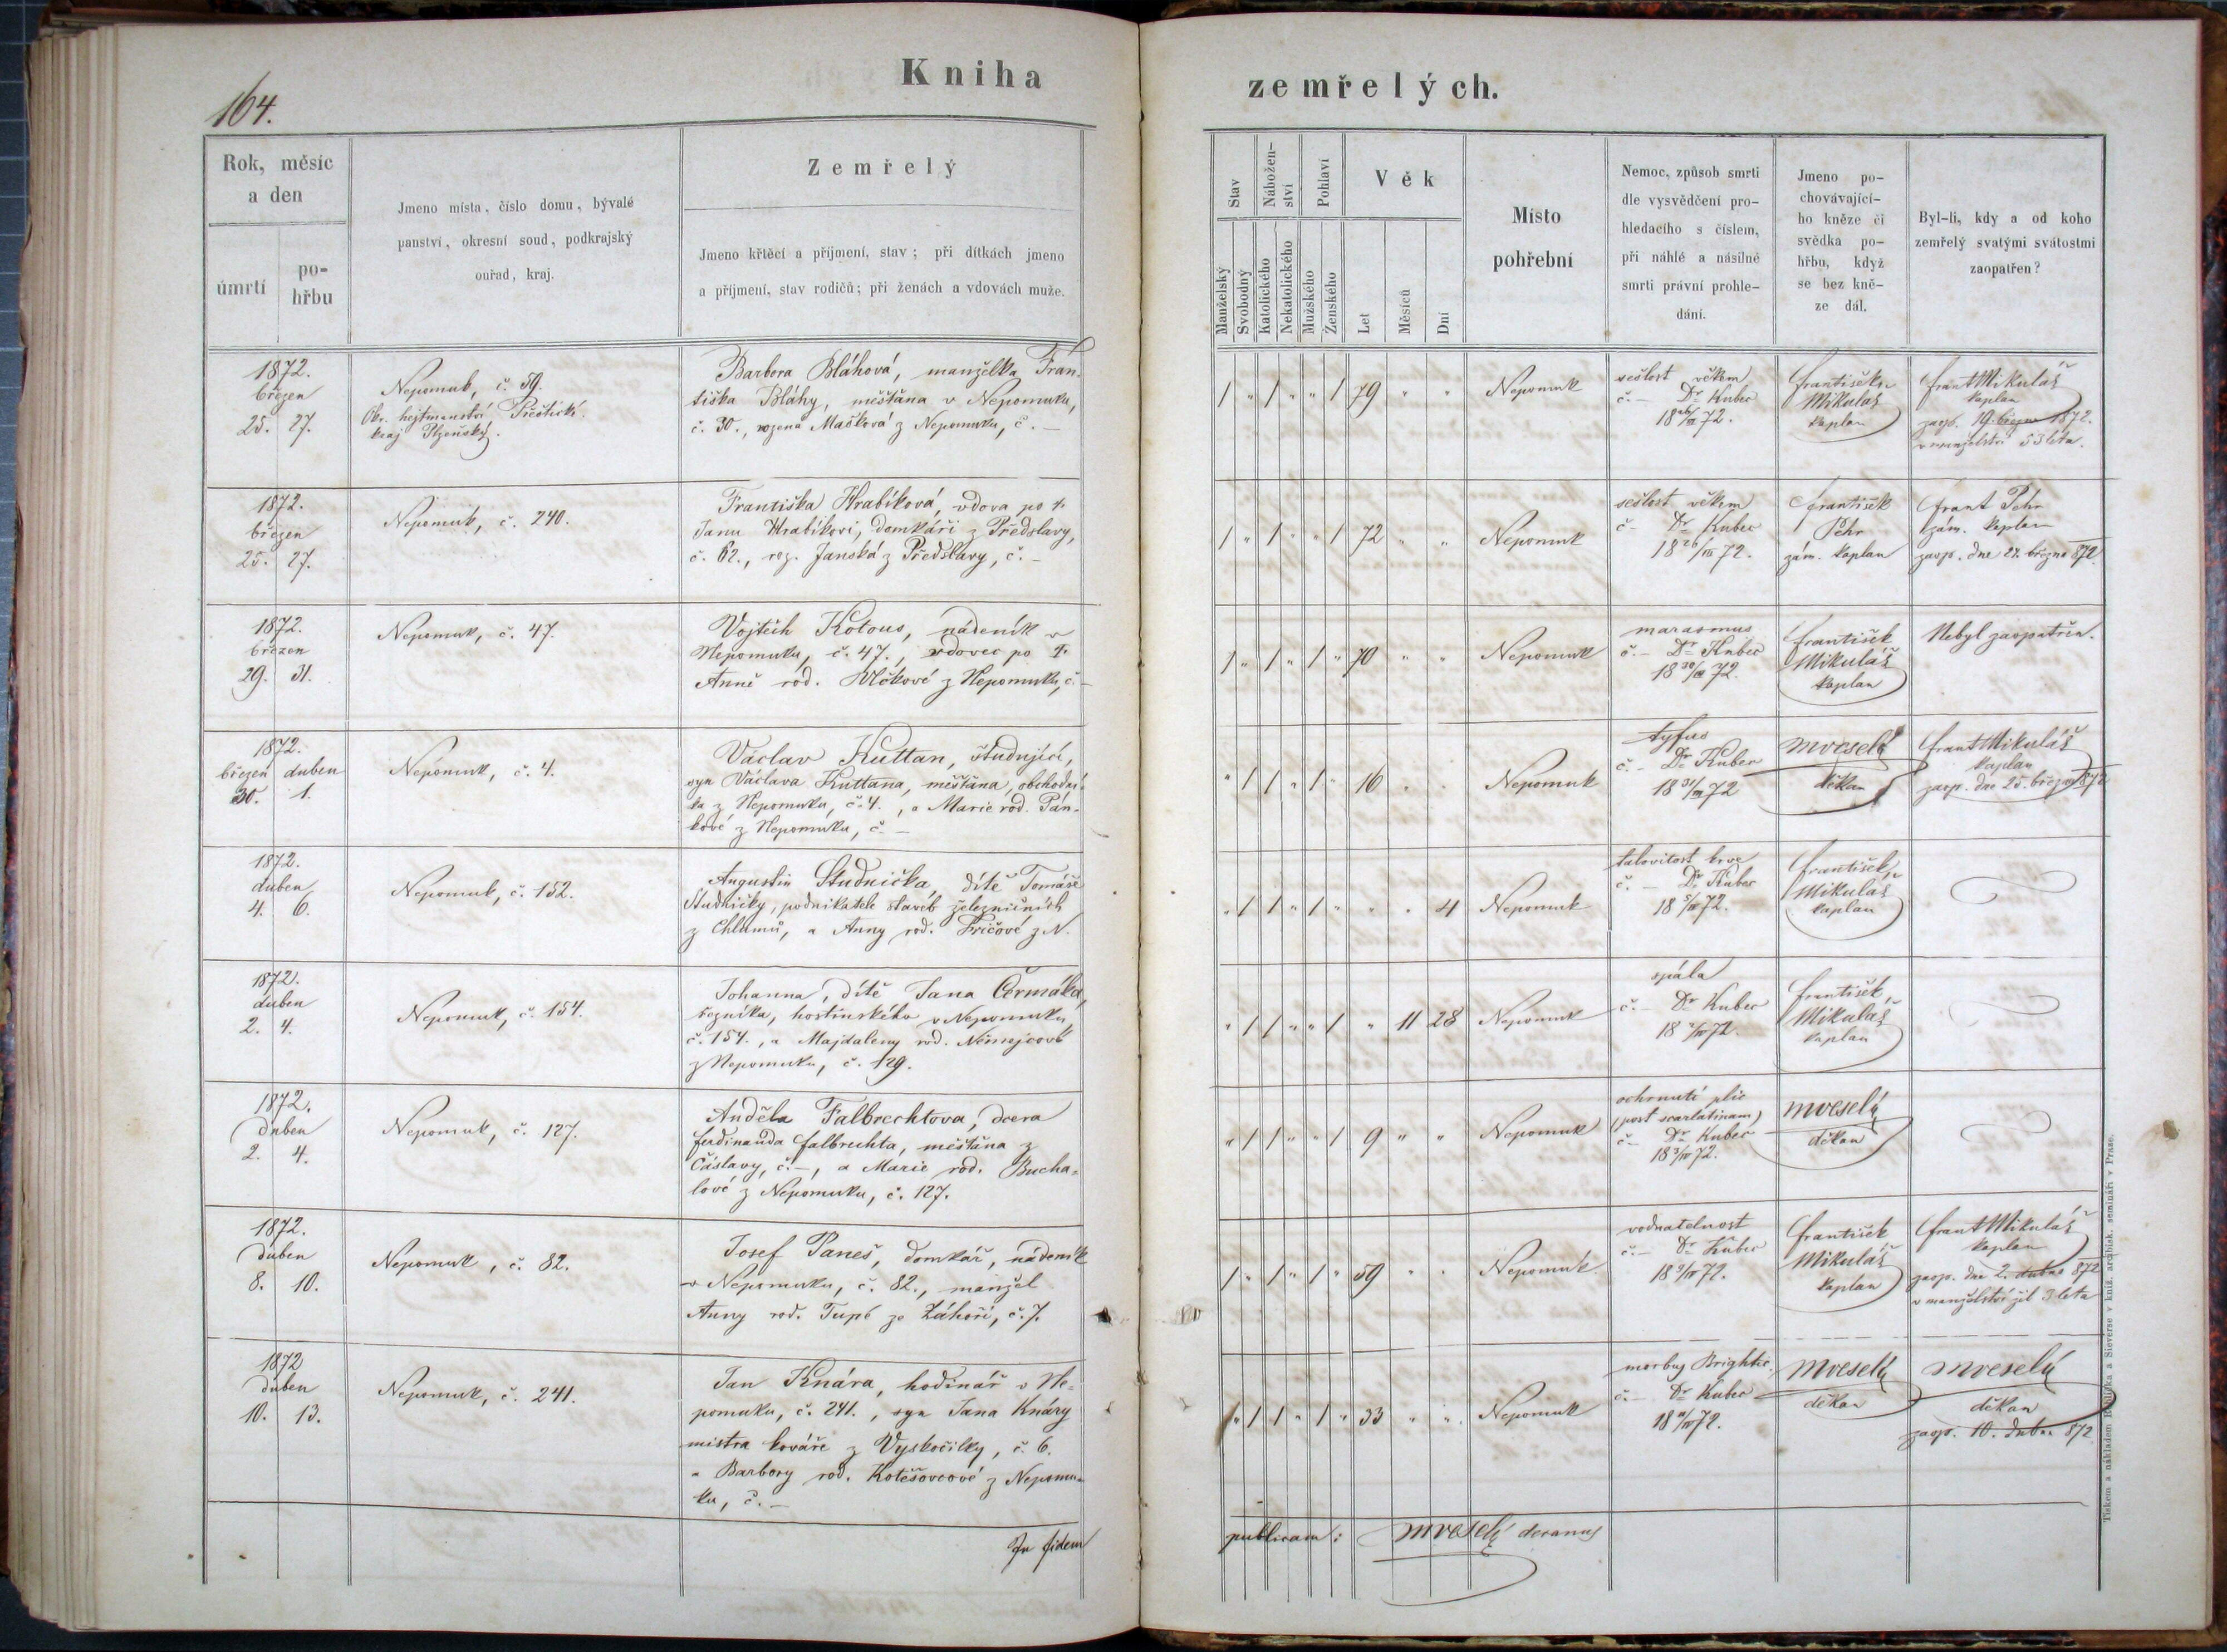 164.
Kniha
zemřelých.
Rok, měsíc
a den
úmrtí
po-
hřbu
Jmeno místa, číslo domu, bývalé
panství, okresní soud, podkrajský
ouřad, kraj.
Zemřelý
Jmeno křtěcí a příjmení, stav; při dítkách jmeno
a příjmení, stav rodičů; při ženách a vdovách muže.
Stav
Manželský
Svobodný
Nábožen-
ství
Katolického
Nekatolického
Pohlaví
Mužského
Ženského
Věk
Let
Měsíců
Dní
Místo
pohřební
Nemoc, způsob smrti
dle vysvědčení pro-
hledacího s číslem,
při náhlé a násilné
smrti právní prohle-
dání.
Jmeno po-
chovávající-
ho kněze či
svědka po-
hřbu, když
se bez kně-
ze dál.
Byl-li, kdy a od koho
zemřelý svatými svátostmi
zaopatřen?
1872.
březen
25. 27.
Nepomuk, č. 59.
Okr. hejtmanství Přeštické.
kraj Plzeňský.
Barbora Bláhová, manželka Fran-
tiška Bláhy, měšťana v Nepomuku,
č. 30., rozená Mašková z Nepomuku, č. –
1 " 1 " " 1 79 " "
Nepomuk
sešlost věkem
č. – Dr. Kubec
18 26/III 72.
František
Mikuláš
kaplan
Frant Mikuláš
kaplan
zaop. 19. března 1872.
v manželství 53 léta.
1872.
březen
25. 27.
Nepomuk, č. 240.
Františka Hrabíková, vdova po †
Janu Hrabíkovi, domkáři z Předslavy,
č. 62., roz. Janská z Předslavy, č. –
1 " 1 " " 1 72 " "
Nepomuk
sešlost věkem
č – Dr. Kubec
18 26/III 72.
František
Pehr
zám. kaplan
Frant Pehr
zám. kaplan
zaop. dne 21. března 872
1872.
březen
29. 31.
Nepomuk, č. 47.
Vojtěch Kotous, nádeník v
Nepomuku, č. 47., vdovec po †
Anně rod. Vlčkové z Nepomuku, č. –
1 " 1 " 1 " 70 " "
Nepomuk
marasmus
č. – Dr. Kubec
18 30/III 72.
František
Mikuláš
kaplan
Nebyl zaopatřen.
1872.
březen duben
30. 1.
Nepomuk, č. 4.
Václav Kuttan, študující,
syn Václava Kuttana, měšťana, obchodní-
ka z Nepomuku, č. 4., a Marie rod. Pán-
kové z Nepomuku, č. –
" 1 1 " 1 " 16 . .
Nepomuk
tyfus
č. – Dr. Kubec
18 31/III 72
MVeselý
děkan
Frant Mikuláš
kaplan
zaop. dne 25. března 872
1872.
duben
4. 6.
Nepomuk, č. 152.
Augustin Studnička, dítě Tomáše
Studničky, podnikatele staveb železničních
z Chlumů, a Anny rod. Fričové z N.
" 1 1 " 1 " " " 4
Nepomuk
krve
č. – Dr. Kubec
18 72.
František
Mikuláš
kaplan
1872.
duben
2. 4.
Nepomuk, č. 154.
Johanna, dítě Jana Čermáka,
řezníka, hostinského v Nepomuku
č. 154., a Majdaleny rod. Němejcové
z Nepomuku, č. 129.
" 1 1 " " 1 " 11 28
Nepomuk
spála
č. – Dr. Kubec
18 72.
František
Mikuláš
kaplan
1872.
duben
2. 4.
Nepomuk, č. 127.
Anděla Falbrechtova, dcera
Ferdinanda Falbrechta, měšťana z
Čáslavy, č. –, a Marie rod. Bucha-
lové z Nepomuku, č. 127.
" 1 1 " " 1 9 " "
Nepomuk
ochrnutí plic
(post scarlatinam)
č – Dr. Kubec
18 3/IV 72.
MVeselý
děkan
1872.
duben
8. 10.
Nepomuk, č. 82.
Josef Paneš, domkář, nádeník
v Nepomuku, č. 82., manžel
Anny rod. Tupé ze Záhoří, č. 7.
1 " 1 " 1 " 59 " "
Nepomuk
vodnatelnost
č. – Dr. Kubec
18 9/IV 72.
František
Mikuláš
kaplan
Frant Mikuláš
kaplan
zaop. dne 2. dubna 872
v manželství žil 3 léta
1872
duben
10. 13.
Nepomuk, č. 241.
Jan Knára, hodinář v Ne-
pomuku, č. 241., syn Jana Knáry
mistra kováře z Vyskočilky, č. 6.
a Barbory rod. Kotěšovcové z Nepomu-
ku, č. –
" 1 1 " 1 " 33 " "
Nepomuk
morbus Brightic.
č. – Dr. Kubec
18 11/IV 72.
MVeselý
děkan
MVeselý
děkan
zaop. 10. dubna 872
In fidem
publicam: MVeselý decanus
Tiskem a nákladem Rohlíčka a Sieverse v kníž. arcibisk. semináři v Praze.